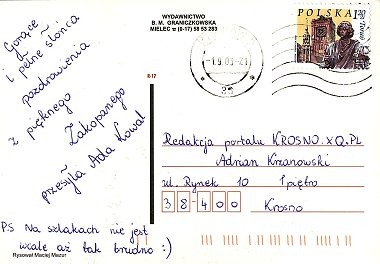 WYDAWNICTWO
B. M. GRANICZKOWSKA
MIELEC ☎ (0-17) 58 53 253
POLSKA
-1.9.03.-21
R-17
Gorące
i pełne słońca
pozdrowienia
z pięknego
Zakopanego
przesyła Ada Kowal
P.S Na szlakach nie jest
wcale aż tak brudno :)
Rysował Maciej Mazur
Redakcja portalu KROSNO.XQ.PL
Adrian Krzanowski
ul. Rynek 10 I piętro
38-400
Krosno